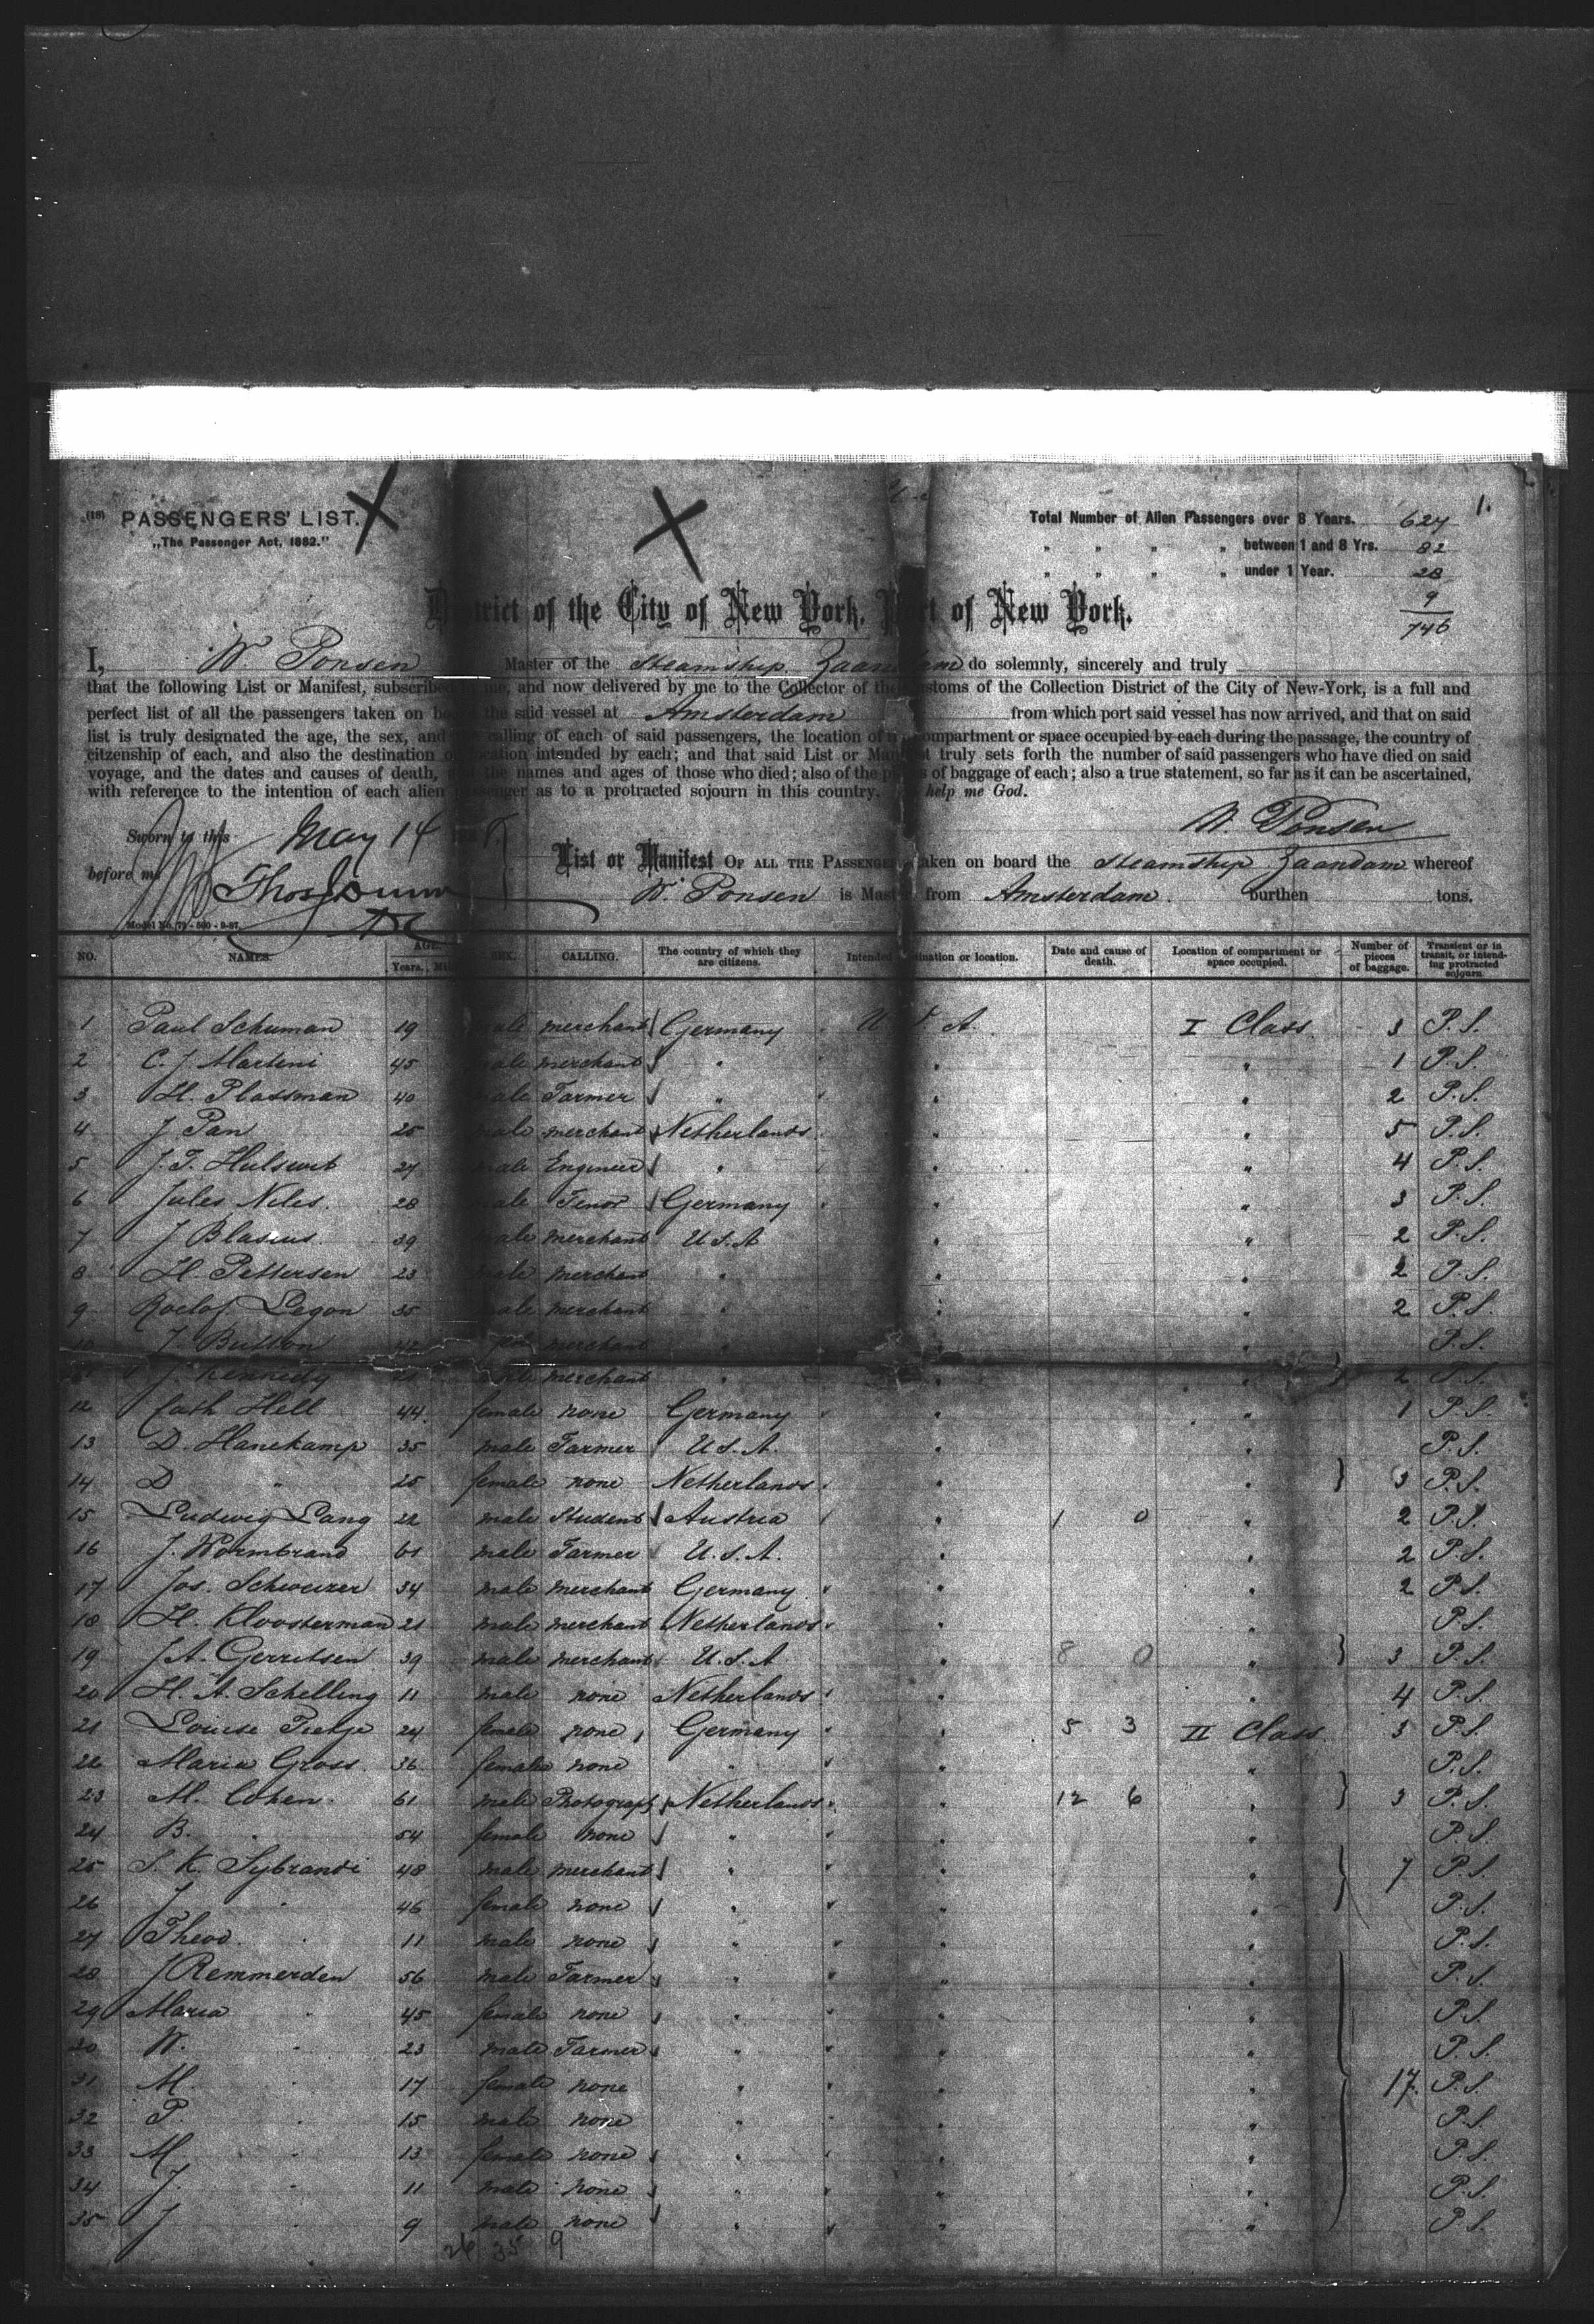 1.
(18) PASSENGERS' LIST.
„The Passenger Act, 1882."
Total Number of Alien Passengers over 8 Years. 624
„ „ „ „ between 1 and 8 Yrs. 82
„ „ „ „ under 1 Year. 28
9
746
District of the City of New York, Port of New York.
I, W. Ponsen Master of the Steamship Zaandam do solemnly, sincerely and truly
that the following List or Manifest, subscribed me, and now delivered by me to the Collector of the Customs of the Collection District of the City of New-York, is a full and
perfect list of all the passengers taken on board the said vessel at Amsterdam from which port said vessel has now arrived, and that on said
list is truly designated the age, the sex, and calling of each of said passengers, the location of compartment or space occupied by each during the passage, the country of
citzenship of each, and also the destination or location intended by each; and that said List or Manifest truly sets forth the number of said passengers who have died on said
voyage, and the dates and causes of death, and the names and ages of those who died; also of the pieces of baggage of each; also a true statement, so far as it can be ascertained,
with reference to the intention of each alien passenger as to a protracted sojourn in this country. help me God.
W. Ponsen
Sworn to this May 14
before me
List or Manifest OF ALL THE PASSENGERS taken on board the Steamship Zaandam whereof
W. Ponsen is Master from Amsterdam. burthen tons.
NO. NAMES. AGE. Years. SEX. CALLING. The country of which they are citizens. Intended destination or location. Date and cause of death. Location of compartment or space occupied. Number of pieces of baggage. Transient or in transit, or intending protracted sojourn.
1 Paul Schuman 19 male merchant Germany U S A. I Class 3 P.S.
2 C. J. Marteni 45 male merchant " " " 1 P.S.
3 H. Plassman 40 male Farmer " " " 2 P.S.
4 J. Pan 25 male merchant Netherlands " " 5 P.S.
5 J. T. Hulswit 27 male Engineer " " " 4 P.S.
6 Jules Niles. 28 male Tenor Germany " " 3 P.S.
7 J Blasius. 39 male merchant U.S.A " " 2 P.S.
8 H. Pettersen 23 male merchant " " " 2 P.S.
9 Roelof Legon 35 male merchant " " " 2 P.S.
10 J. Button 42 male merchant " " " P.S.
J. Kennedy male merchant " " " 2 P.S.
12 Cath Hell 44 female none Germany " " 1 P.S.
13 D. Hanekamp 35 male Farmer U.S.A. " " P.S.
14 D " 25 female none Netherlands " " 3 P.S.
15 Ludwig Lang 22 male Student Austria " 1 0 " 2 P.S.
16 J. Wormbrand 61 male Farmer U.S.A. " " 2 P.S.
17 Jos. Schweizer 34 male merchant Germany " " 2 P.S.
18 H. Kloosterman 21 male merchant Netherlands " " P.S.
19 J A. Gerritsen 39 male merchant U.S.A " 8 0 " 3 P.S.
20 H. A. Schelling 11 male none Netherlands " " 4 P.S.
21 Louise Tietje 24 female none Germany " 5 3 II Class 3 P.S.
22 Maria Gross. 36 female none " " " P.S.
23 M. Cohen 61 male Photograph Netherlands " 12 6 " 3 P.S.
24 B. " 54 female none " " " P.S.
25 S. K. Sybrandi 48 male merchant " " " 7 P.S.
26 J " 46 female none " " " P.S.
27 Theod. " 11 male none " " " P.S.
28 J Remmerden 56 male Farmer " " " P.S.
29 Maria " 45 female none " " " P.S.
30 W. " 23 male Farmer " " " P.S.
31 M. " 17 female none " " " 17. P.S.
32 P. " 15 male none " " " P.S.
33 M " 13 female none " " " P.S.
34 J. " 11 male none " " " P.S.
35 J " 9 male none " " " P.S.
26 35 9